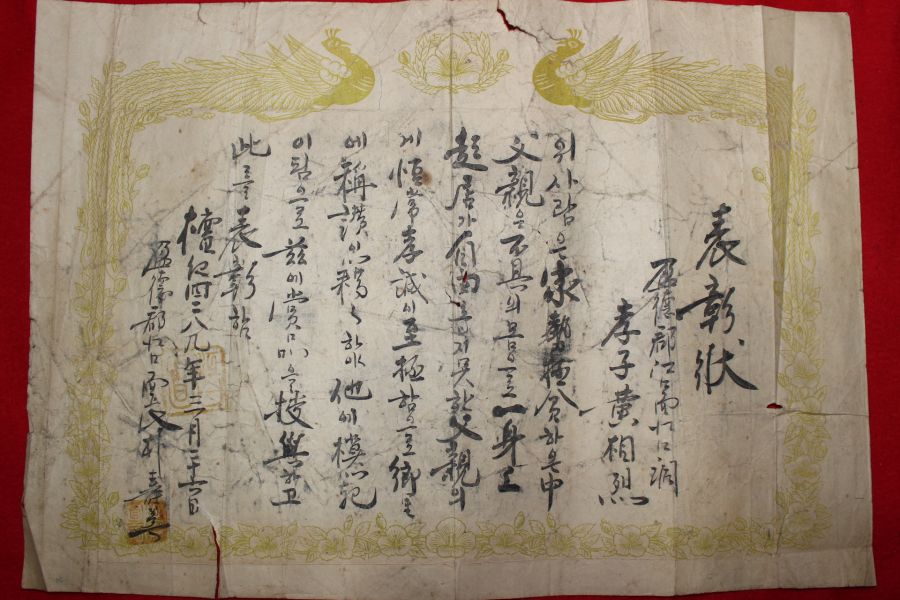 表彰狀
盈德郡江口面江口洞
孝子 黃相烈
위 사람은 家勢極貧하은中
父親은 不具의 몸으로 一身上
起居가 自由롭지 못한 父親의
게 恒常 孝誠이 至極함으로 鄕土
에 稱讚이 藉々하야 他에 模範
이 됨으로 玆에 賞品을 授與하고
此를 表彰함
檀紀四二八九年三月二十 日
盈德郡 口面長